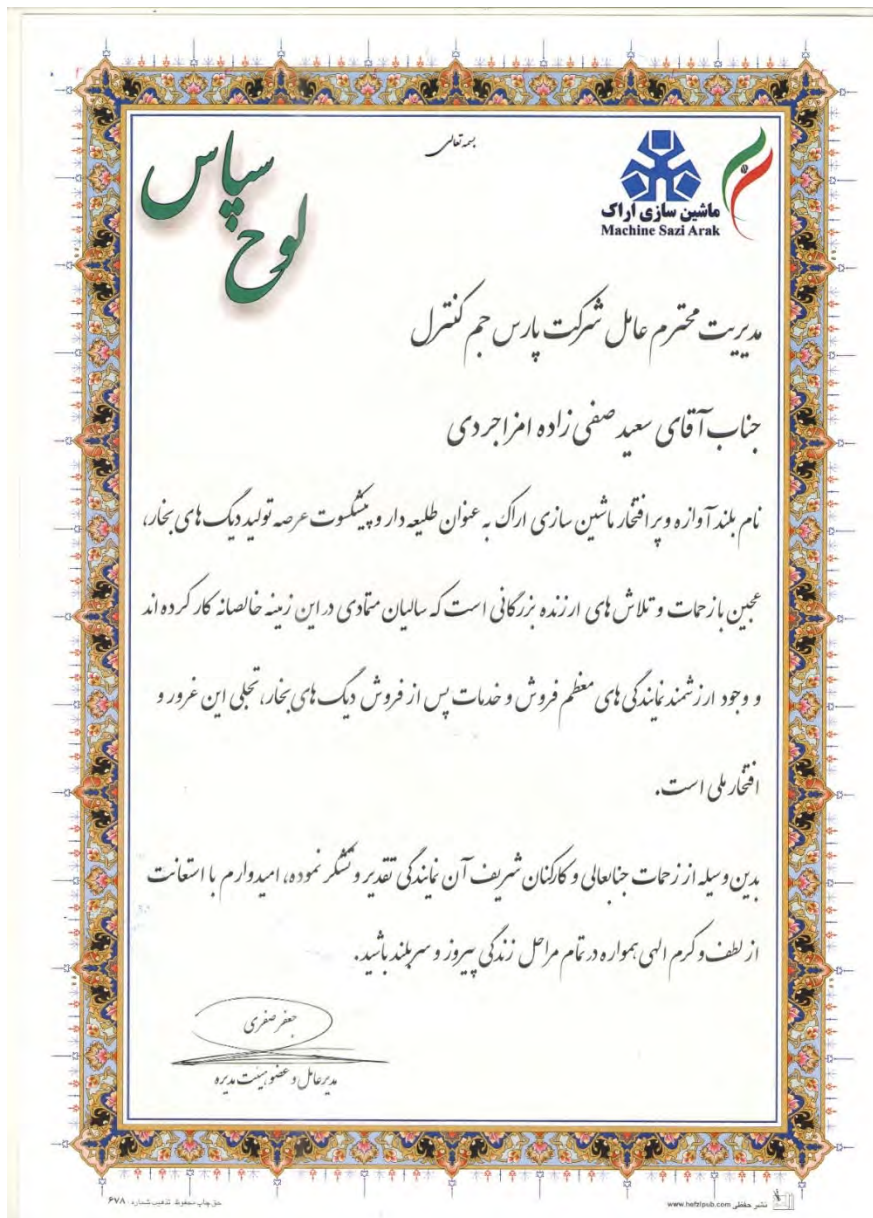 بسمه تعالی
لوح سپاس
ماشین سازی اراک
Machine Sazi Arak
مدیریت محترم عامل شرکت پارس جم کنترل
جناب آقای سعید صفی زاده امزاجردی
نام بلند آوازه و پر افتخار ماشین سازی اراک به عنوان طلیعه دار و پیشکسوت عرصه تولید دیگ های بخار،
عجین با زحمات و تلاش های ارزنده بزرگانی است که سالیان متمادی در این زمینه خالصانه کار کرده اند
و وجود ارزشمند نمایندگی های معظم فروش و خدمات پس از فروش دیگ های بخار، تجلی این غرور و
افتخار ملی است.
بدین وسیله از زحمات جنابعالی و کارکنان شریف آن نمایندگی تقدیر و تشکر نموده، امیدوارم با استعانت
از لطف و کرم الهی همواره در تمام مراحل زندگی پیروز و سربلند باشید.
جعفر صفری
مدیرعامل و عضو هیئت مدیره
حق چاپ محفوظ تذهیب شماره: ۶۷۸
نشر حفظی www.hefzipub.com